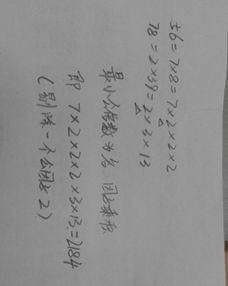 56=7×8=7×2×2×2
78=2×39=2×3×13
最小公倍数为各因子乘积
即 7×2×2×2×3×13=2184
(剔除一个公因子2)